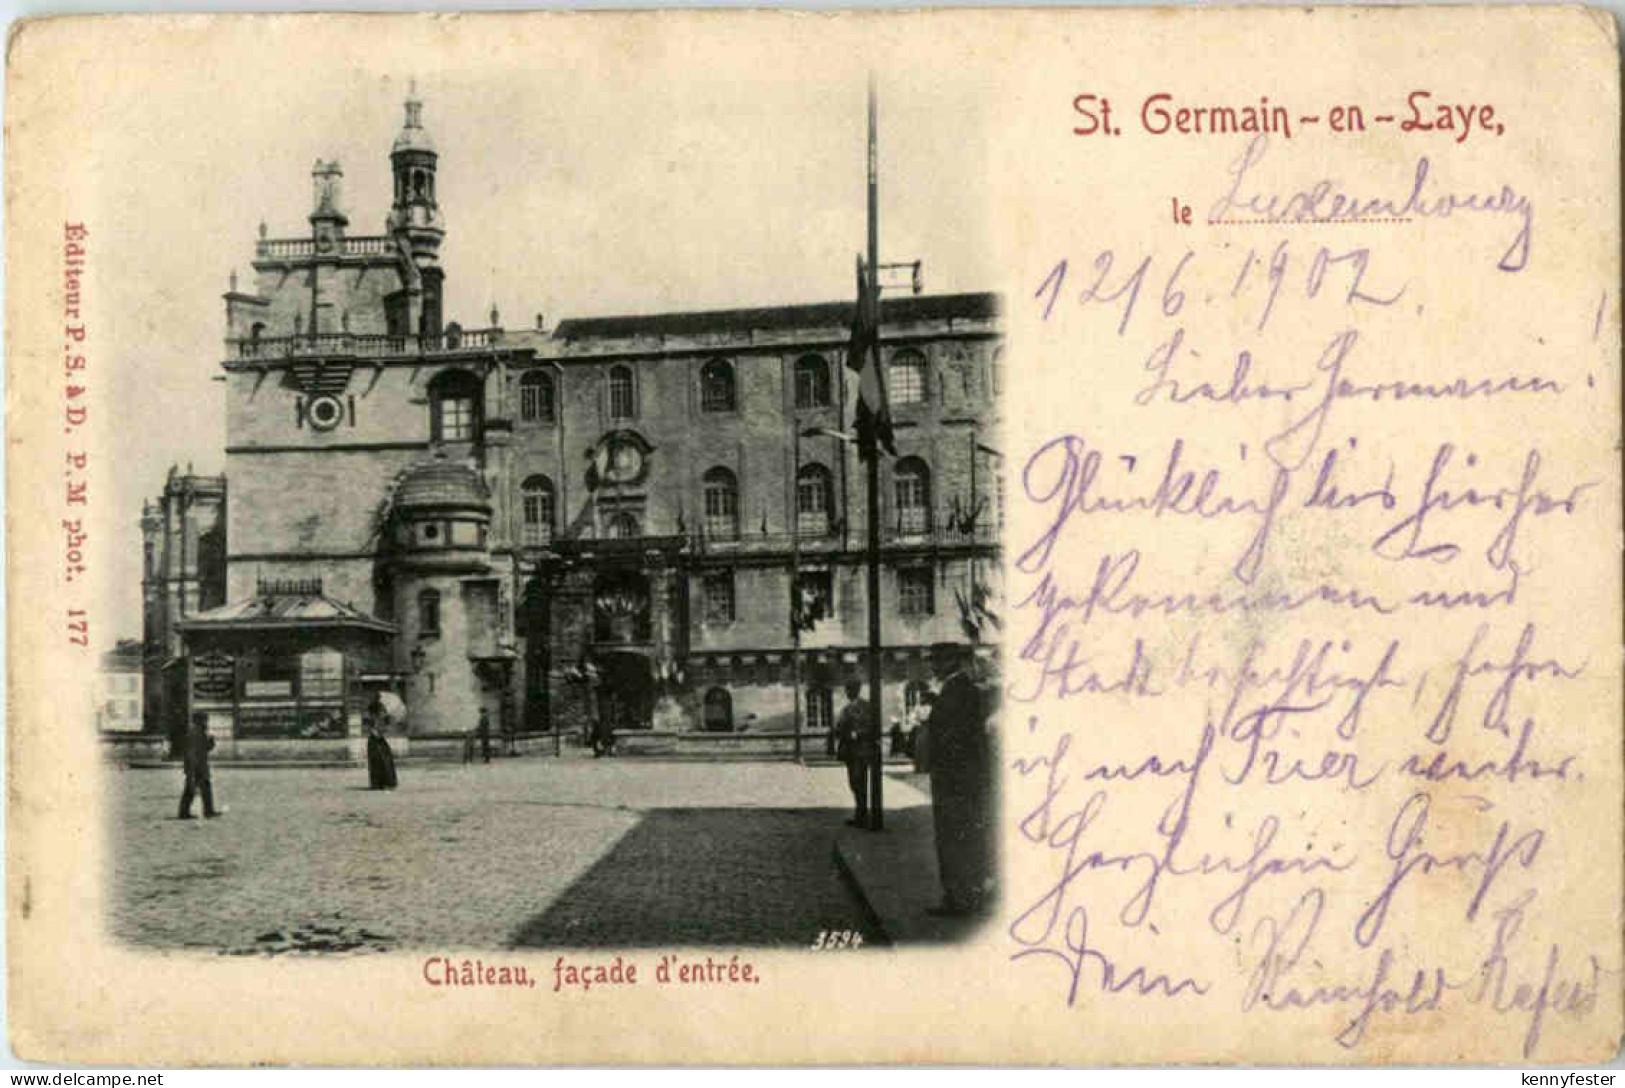 St. Germain-en-Laye,
le Luxembourg
12/6. 1902.
Lieber Hermann!
Glücklich bis hierher
gekommen und
Stadt besichtigt, fahre
ich nach Trier weiter.
Herzlichen Gruß
Dein Reinhold
Éditeur P. S. à D. P. M phot. 177
3594
Château, façade d'entrée.
delcampe.net
kennyfester